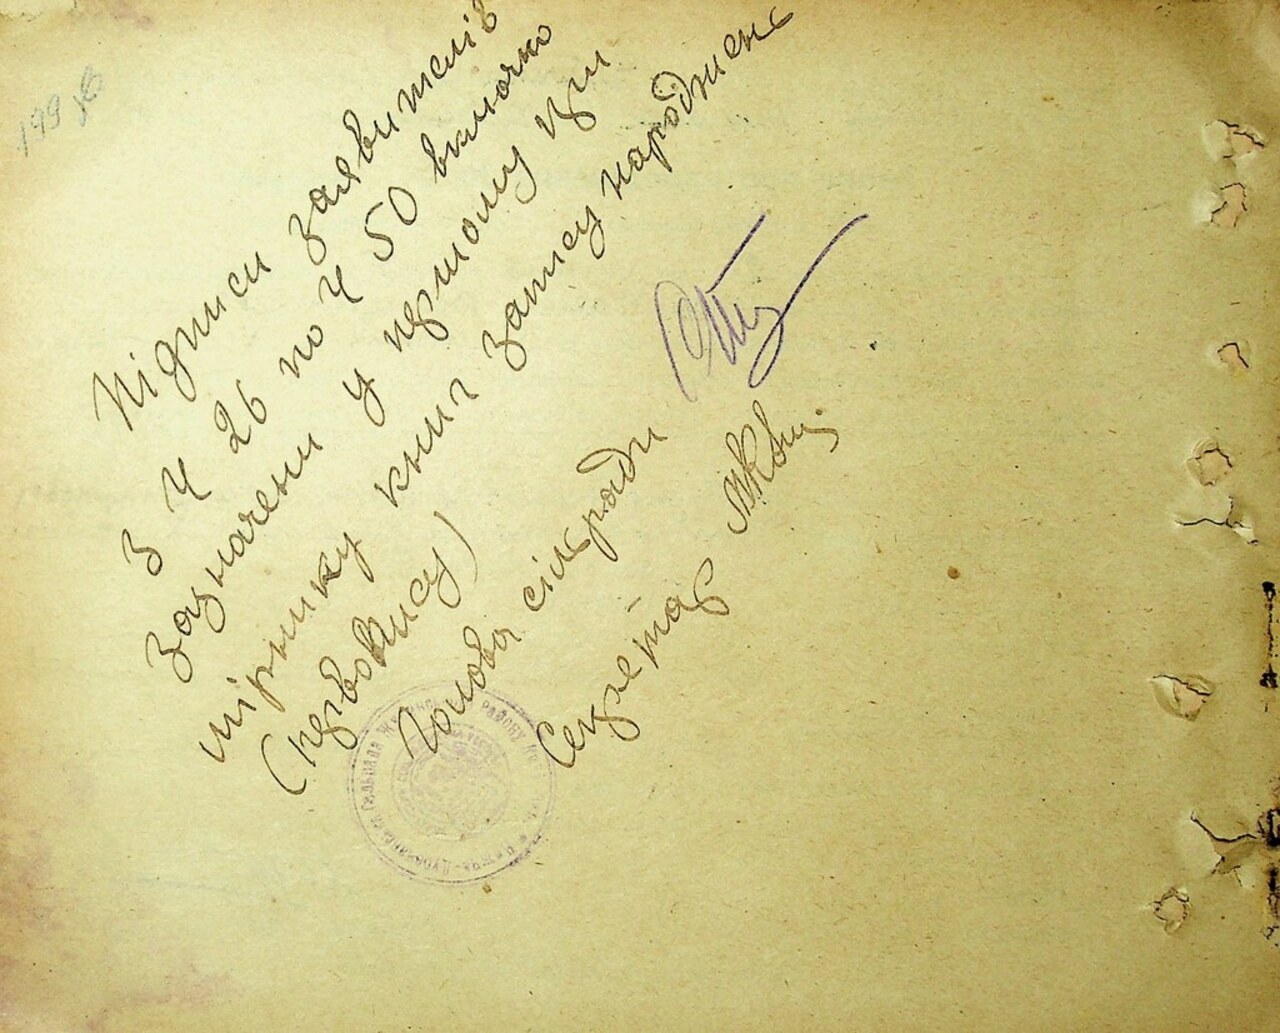 199 зв
Підписи заявителів
з Ч 26 по Ч 50 включно
зазначени у першому при
мірнику книг запису народжень
(первопису)
Голова сільради
Секретар
сильрада району